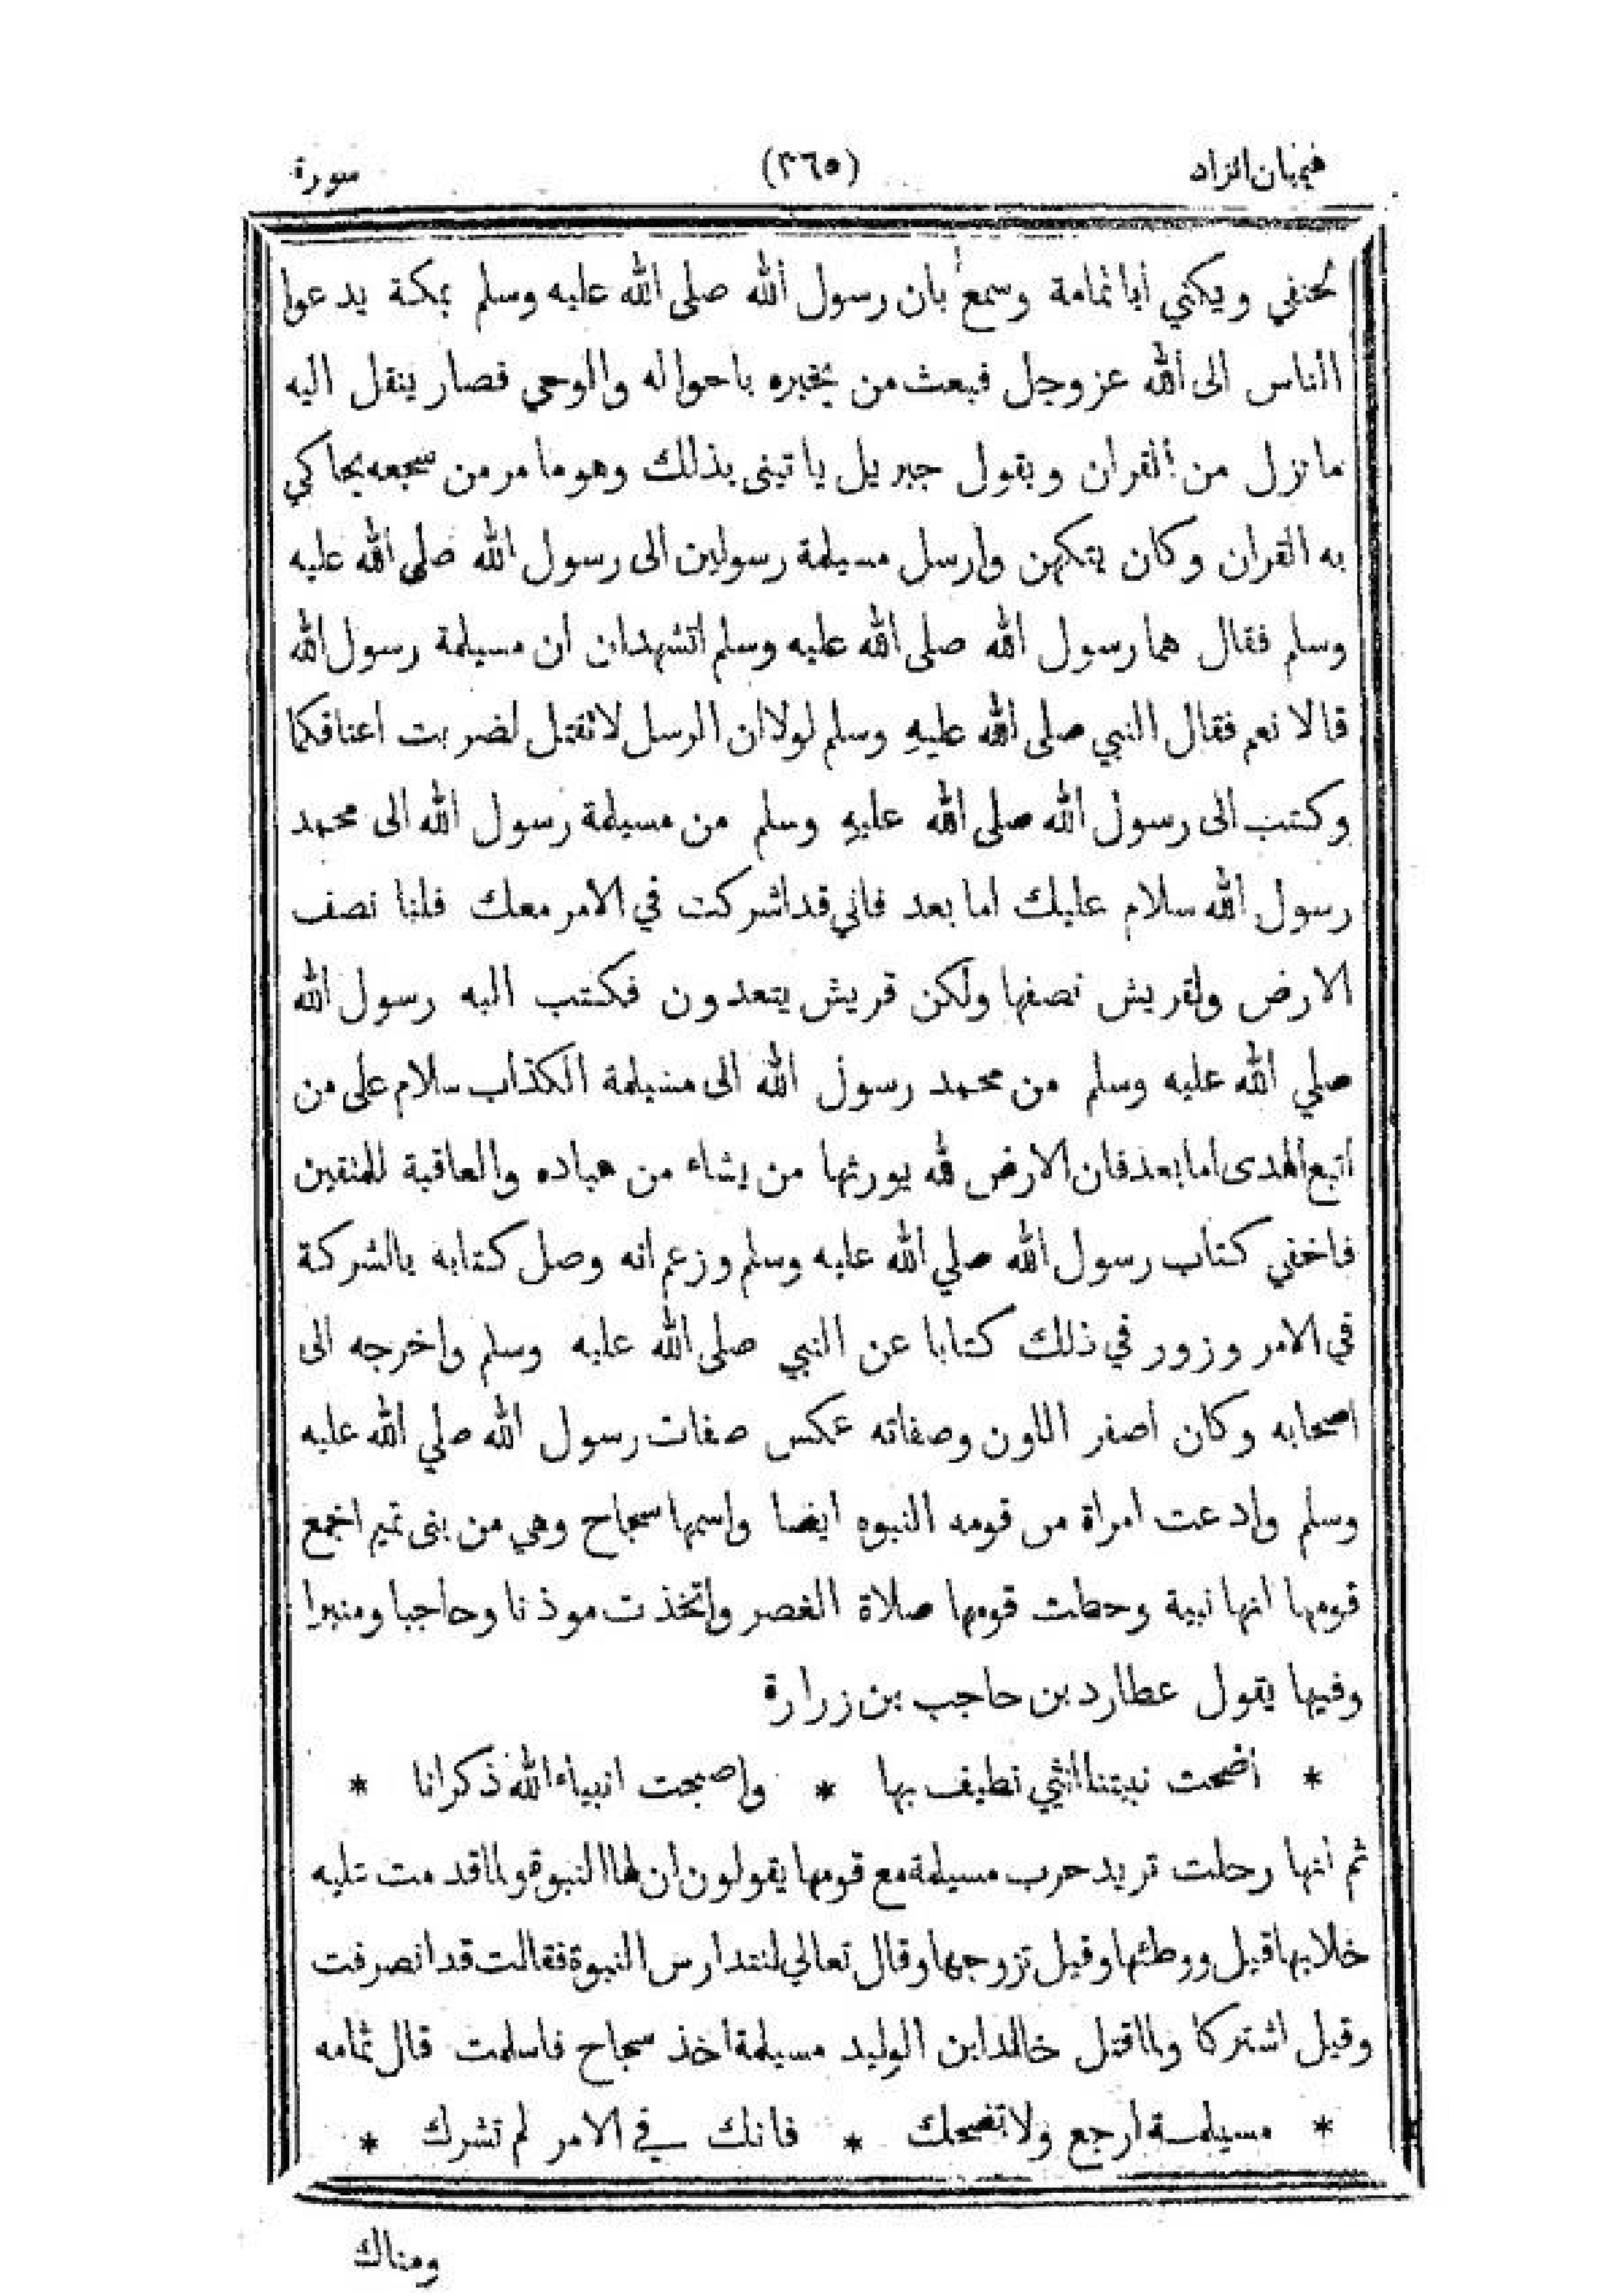 هيميان الزاد (٣٦٥) سورة
لحنفي ويكني أبا ثمامة وسمع بان رسول الله صلى الله عليه وسلم بمكة يدعوا
الناس الى الله عز وجل فبعث من يخبره باحواله والوحي فصار ينقل اليه
ما نزل من القران ويقول جبريل ياتيني بذلك وهو ما مر من سجعه يحاكي
به القران وكان يتكهن وارسل مسيلمة رسولين الى رسول الله صلى الله عليه
وسلم فقال هما رسول الله صلى الله عليه وسلم اتشهدان ان مسيلمة رسول الله
قالا نعم فقال النبي صلى الله عليه وسلم لولا ان الرسل لا تقتل لضربت اعناقكما
وكتب الى رسول الله صلى الله عليه وسلم من مسيلمة رسول الله الى محمد
رسول الله سلام عليك اما بعد فاني قد اشركت في الامر معك فلنا نصف
الارض ولقريش نصفها ولكن قريش يتعدون فكتب اليه رسول الله
صلي الله عليه وسلم من محمد رسول الله الى مسيلمة الكذاب سلام على من
اتبع الهدى اما بعد فان الارض لله يورثها من يشاء من عباده والعاقبة للمتقين
فاخفي كتاب رسول الله صلي الله عليه وسلم وزعم انه وصل كتابه بالشركة
في الامر وزور في ذلك كتابا عن النبي صلى الله عليه وسلم واخرجه الى
اصحابه وكان اصفر اللون وصفاته عكس صفات رسول الله صلي الله عليه
وسلم وادعت امراة من قومه النبوه ايضا واسمها سجاح وهي من بنى تميم اجمع
قومها انها نبية وحطت قومها صلاة العصر واتخذت موذنا وحاجبا ومنبرا
وفيها يقول عطارد بن حاجب بن زرارة
* أضحت نبيتنا انثي نطيف بها * واصبحت انبياء الله ذكرانا *
ثم انها رحلت تريد حرب مسيلمة مع قومها يقولون ان لها النبوة ولما قدمت عليه
خلا بها قيل ووطئها وقيل تزوجها وقال تعالي لنتدارس النبوة فقالت قد انصرفت
وقيل اشتركا ولما قتل خالد ابن الوليد مسيلمة اخذ سجاح فاسلمت قال ثمامه
* مسيلمة ارجع ولا تمحك * فانك في الامر لم تشرك *
ومناك